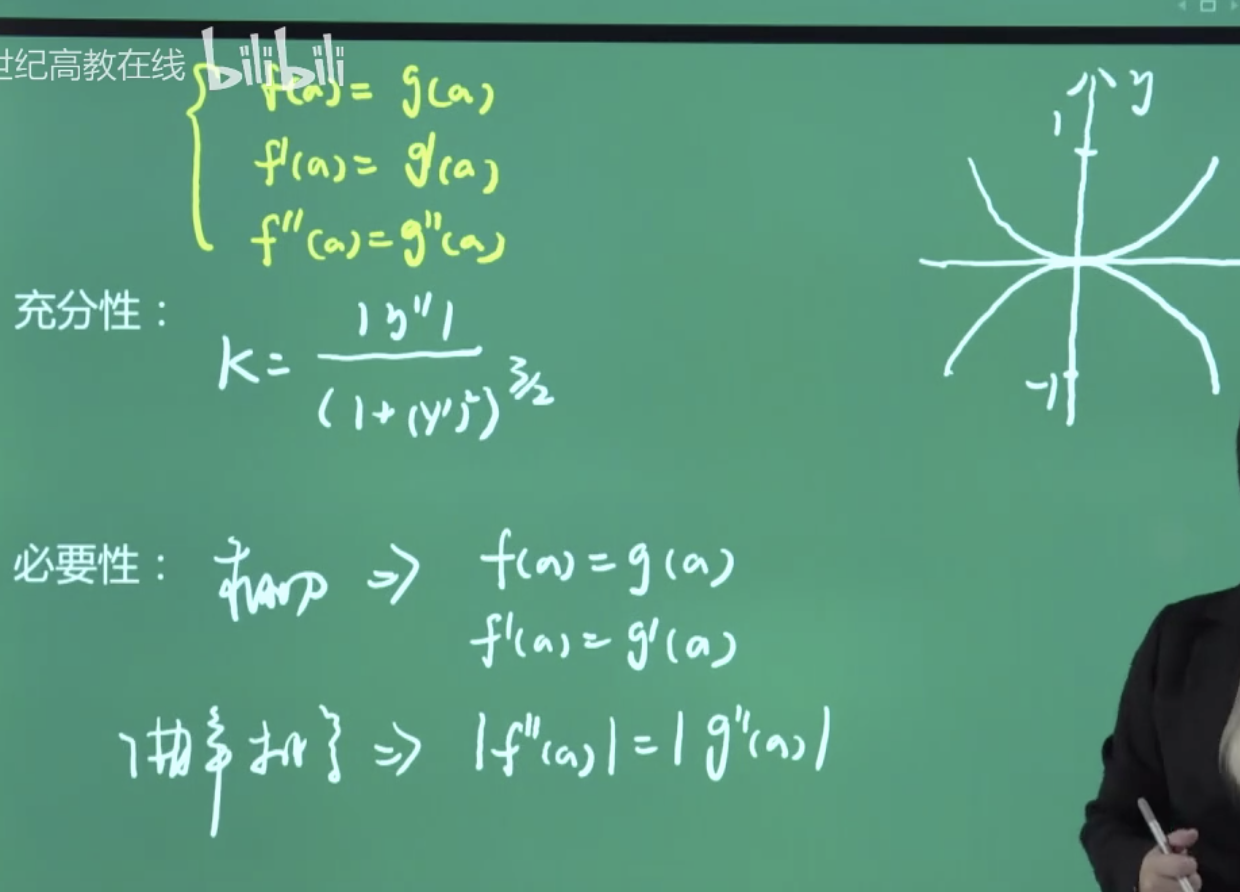 世纪高教在线 bilibili
f(a) = g(a)
f'(a) = g'(a)
f''(a) = g''(a)
y
1
-1
充分性：
K = |y''| / (1+(y')²)^3/2
必要性：
⇒ f(a) = g(a)
f'(a) = g'(a)
曲率相等 ⇒ |f''(a)| = |g''(a)|